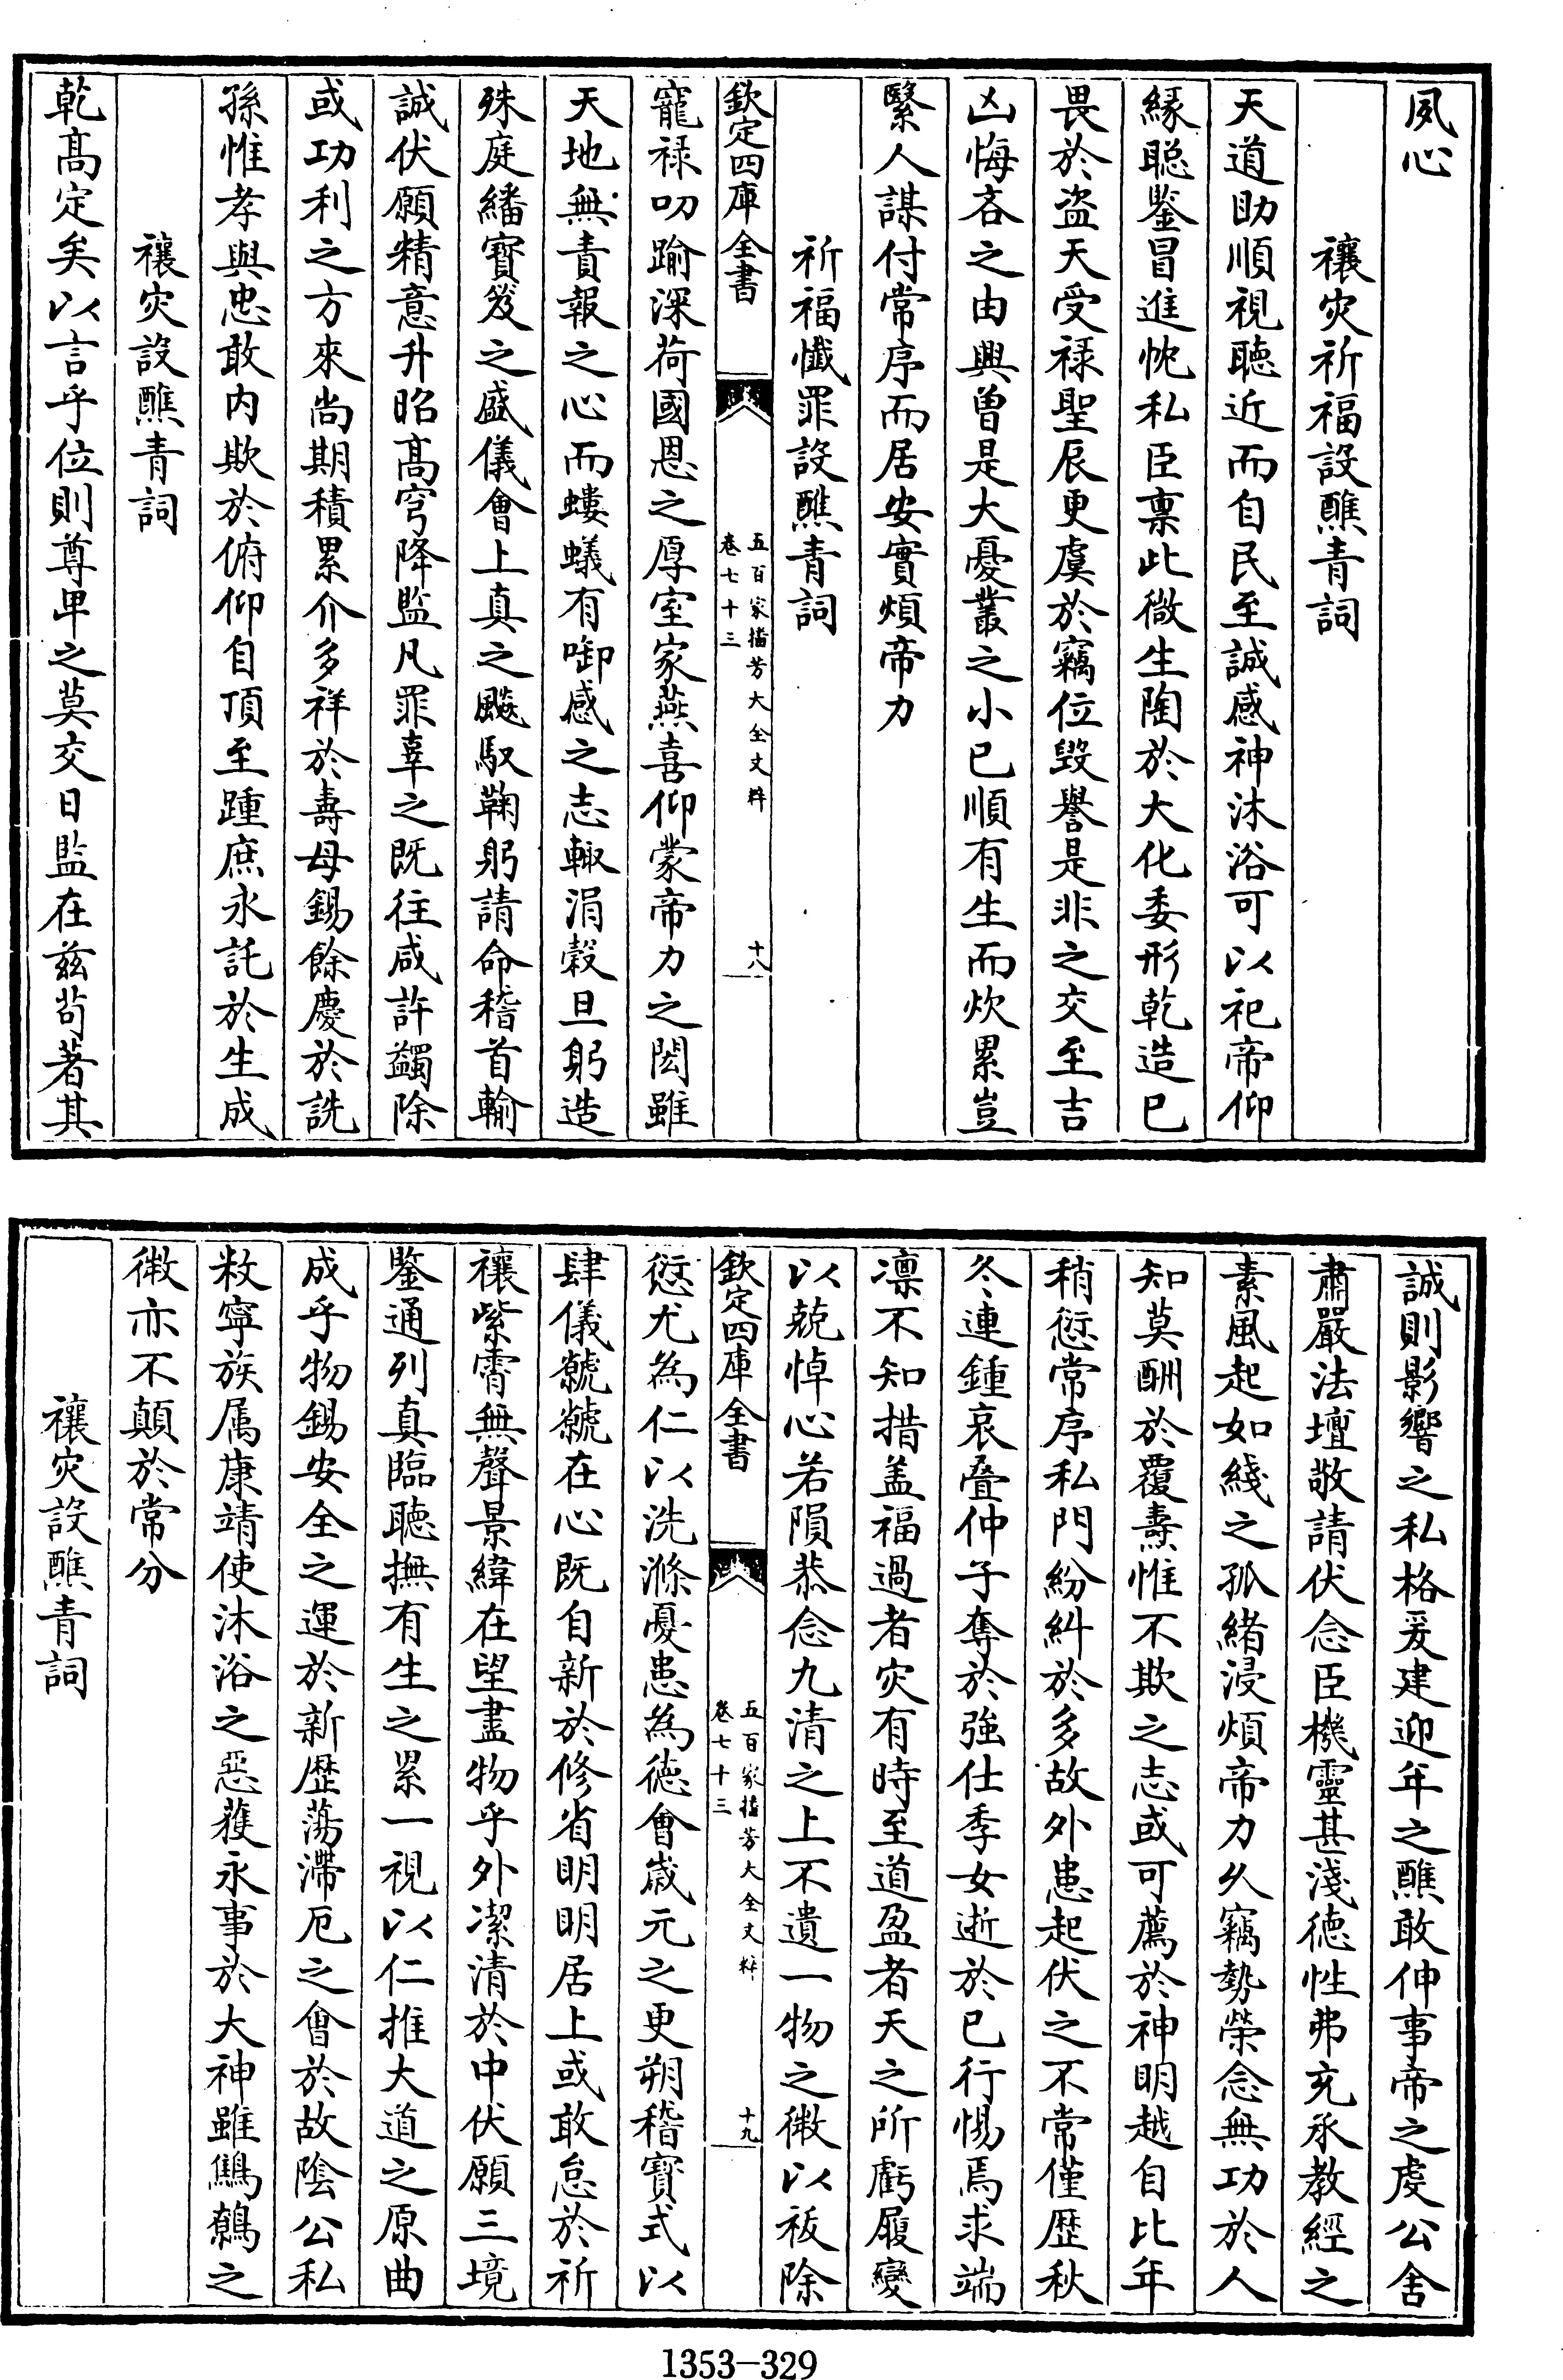 夙心
禳灾祈福設醮青詞
天道助順視聽近而自民至誠感神沐浴可以祀帝仰
緣聰鑒冒進忱私臣禀此微生陶於大化委形乾造已
畏於盗天受祿聖辰更虞於竊位毀譽是非之交至吉
凶悔吝之由興曾是大憂叢之小已順有生而炊累豈
緊人謀付常序而居安實煩帝力
祈福懺罪設醮青詞
欽定四庫全書
五百家播芳大全文粹
卷七十三
十八
寵祿叨踰深荷國恩之厚室家燕喜仰蒙帝力之閎雖
天地無責報之心而螻蟻有啣感之志輙涓穀旦躬造
殊庭繙寳笈之盛儀會上真之飈馭鞠躬請命稽首輸
誠伏願精意升昭髙穹降監凡罪辜之既往咸許蠲除
或功利之方來尚期積累介多祥於壽母錫餘慶於詵
孫惟孝與忠敢内欺於俯仰自頂至踵庶永託於生成
禳灾設醮青詞
乾髙定矣以言乎位則尊卑之莫交日監在兹苟著其
誠則影響之私格爰建迎年之醮敢伸事帝之虔公舍
肅嚴法壇敬請伏念臣機靈甚淺徳性弗充承教經之
素風起如綫之孤緒浸煩帝力乆竊勢榮念無功於人
知莫酬於覆燾惟不欺之志或可薦於神明越自比年
稍愆常序私門紛糾於多故外患起伏之不常僅歴秋
冬連鍾哀疊仲子奪於強仕季女逝於已行惕焉求端
凛不知措盖福過者灾有時至道盈者天之所虧履變
以兢悼心若隕恭念九清之上不遺一物之微以祓除
欽定四庫全書
五百家播芳大全文粹
卷七十三
十九
愆尤為仁以洗滌憂患為徳會嵗元之更朔稽寳式以
肆儀虩虩在心既自新於修省明明居上或敢怠於祈
禳紫霄無聲景緯在望盡物乎外潔清於中伏願三境
鑒通列真臨聽撫有生之累一視以仁推大道之原曲
成乎物錫安全之運於新歴蕩滯厄之會於故陰公私
敉寧族属康靖使沐浴之惡蒦永事於大神雖鷦鷯之
微亦不顛於常分
禳灾設醮青詞
1353-329